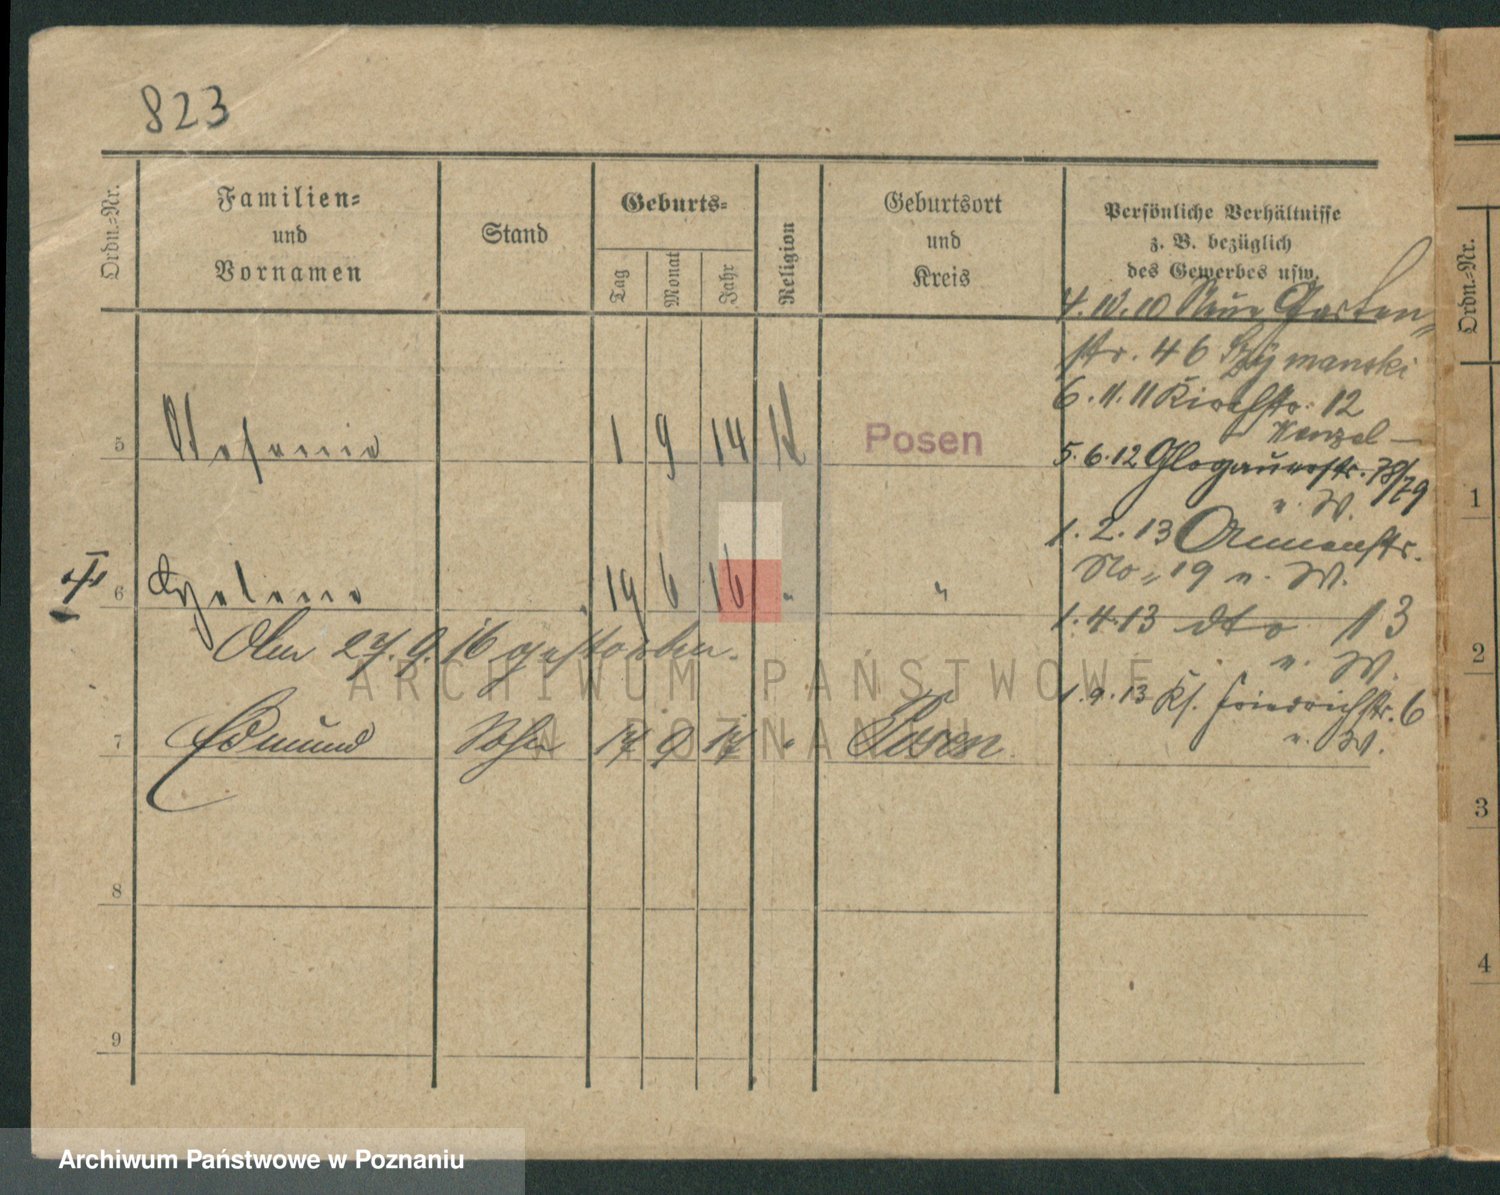 823
Ordn.-Nr.
Familien-
und
Vornamen
Stand
Geburts-
Tag
Monat
Jahr
Religion
Geburtsort
und
Kreis
Persönliche Verhältnisse
z. B. bezüglich
des Gewerbes usw.
4.10.10 Neue Garten-
str. 46 Szymanski
6.11.11 Kirchstr. 12
Wenzel
5.6.12 Glogauerstr. 78/79
u. W.
1.2.13 Annenstr.
No 19 u. W.
1.4.13 dto 13
u. W.
1.9.13 Ks. Friedrichstr. 6
u. W.
5 Stefania 1 9 14 K Posen
6 Helene 19 6 16 " "
Am 27.9.16 gestorben.
7 Edmund Sohn 17 9 17 " Posen
8
9
Ordn.-Nr.
1
2
3
4
ARCHIWUM PAŃSTWOWE
W POZNANIU
Archiwum Państwowe w Poznaniu